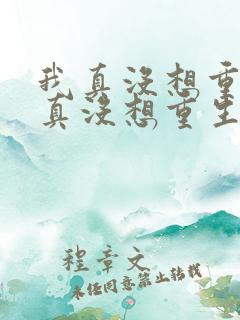 我真没想重
真没想重生
程章文
未经同意禁止转载